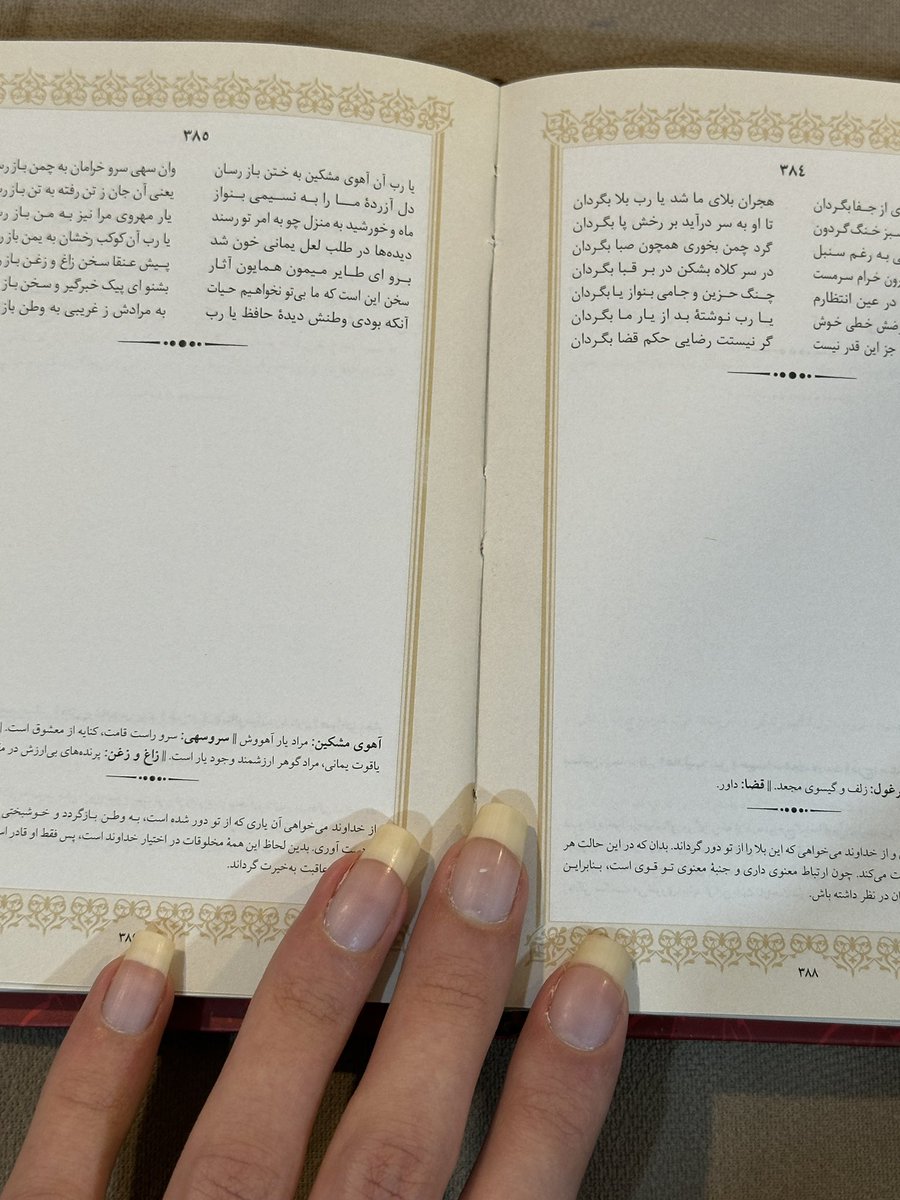 ۳۸٤
هجران بلای ما شد یا رب بلا بگردان
ی از جفا بگردان
تا او به سر درآید بر رخش پا بگردان
سبز خنگ گردون
گرد چمن بخوری همچون صبا بگردان
ی به رغم سنبل
در سر کلاه بشکن در بر قبا بگردان
رون خرام سرمست
چنگ حزین و جامی بنواز یا بگردان
در عین انتظارم
یا رب نوشتهٔ بد از یار ما بگردان
ضش خطی خوش
گر نیستت رضایی حکم قضا بگردان
جز این قدر نیست
رغول: زلف و گیسوی مجعد. || قضا: داور.
و از خداوند می‌خواهی که این بلا را از تو دور گرداند. بدان که در این حالت هر
ت می‌کند. چون ارتباط معنوی داری و جنبهٔ معنوی تو قوی است، بنابراین
ان در نظر داشته باش.
۳۸۸
۳۸۵
یا رب آن آهوی مشکین به ختن باز رسان
وان سهی سرو خرامان به چمن باز رس
دل آزردهٔ ما را به نسیمی بنواز
یعنی آن جان ز تن رفته به تن باز ر
ماه و خورشید به منزل چو به امر تو رسند
یار مهروی مرا نیز به من باز ر
دیده‌ها در طلب لعل یمانی خون شد
یا رب آن کوکب رخشان به یمن باز ر
برو ای طایر میمون همایون آثار
پیش عنقا سخن زاغ و زغن باز ر
سخن این است که ما بی‌تو نخواهیم حیات
بشنو ای پیک خبرگیر و سخن باز
آنکه بودی وطنش دیدهٔ حافظ یا رب
به مرادش ز غریبی به وطن باز
آهوی مشکین: مراد یار آهووش || سروسهی: سرو راست قامت، کنایه از معشوق است. ||
یاقوت یمانی، مراد گوهر ارزشمند وجود یار است. || زاغ و زغن: پرنده‌های بی‌ارزش در
از خداوند می‌خواهی آن یاری که از تو دور شده است، به وطن بازگردد و خوشبختی
دست آوری. بدین لحاظ این همهٔ مخلوقات در اختیار خداوند است، پس فقط او قادر اس
عاقبت به‌خیرت گرداند.